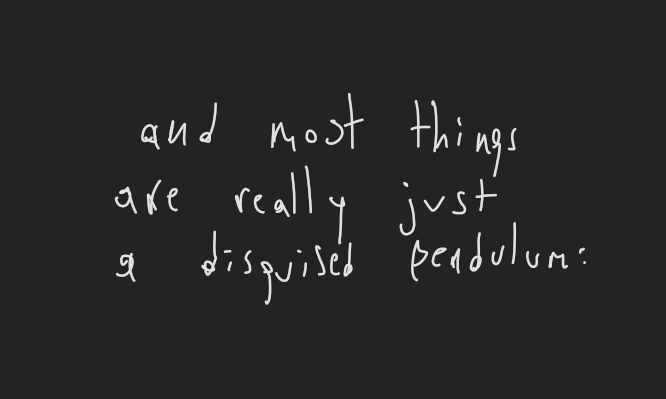 and most things
are really just
a disguised pendulum: